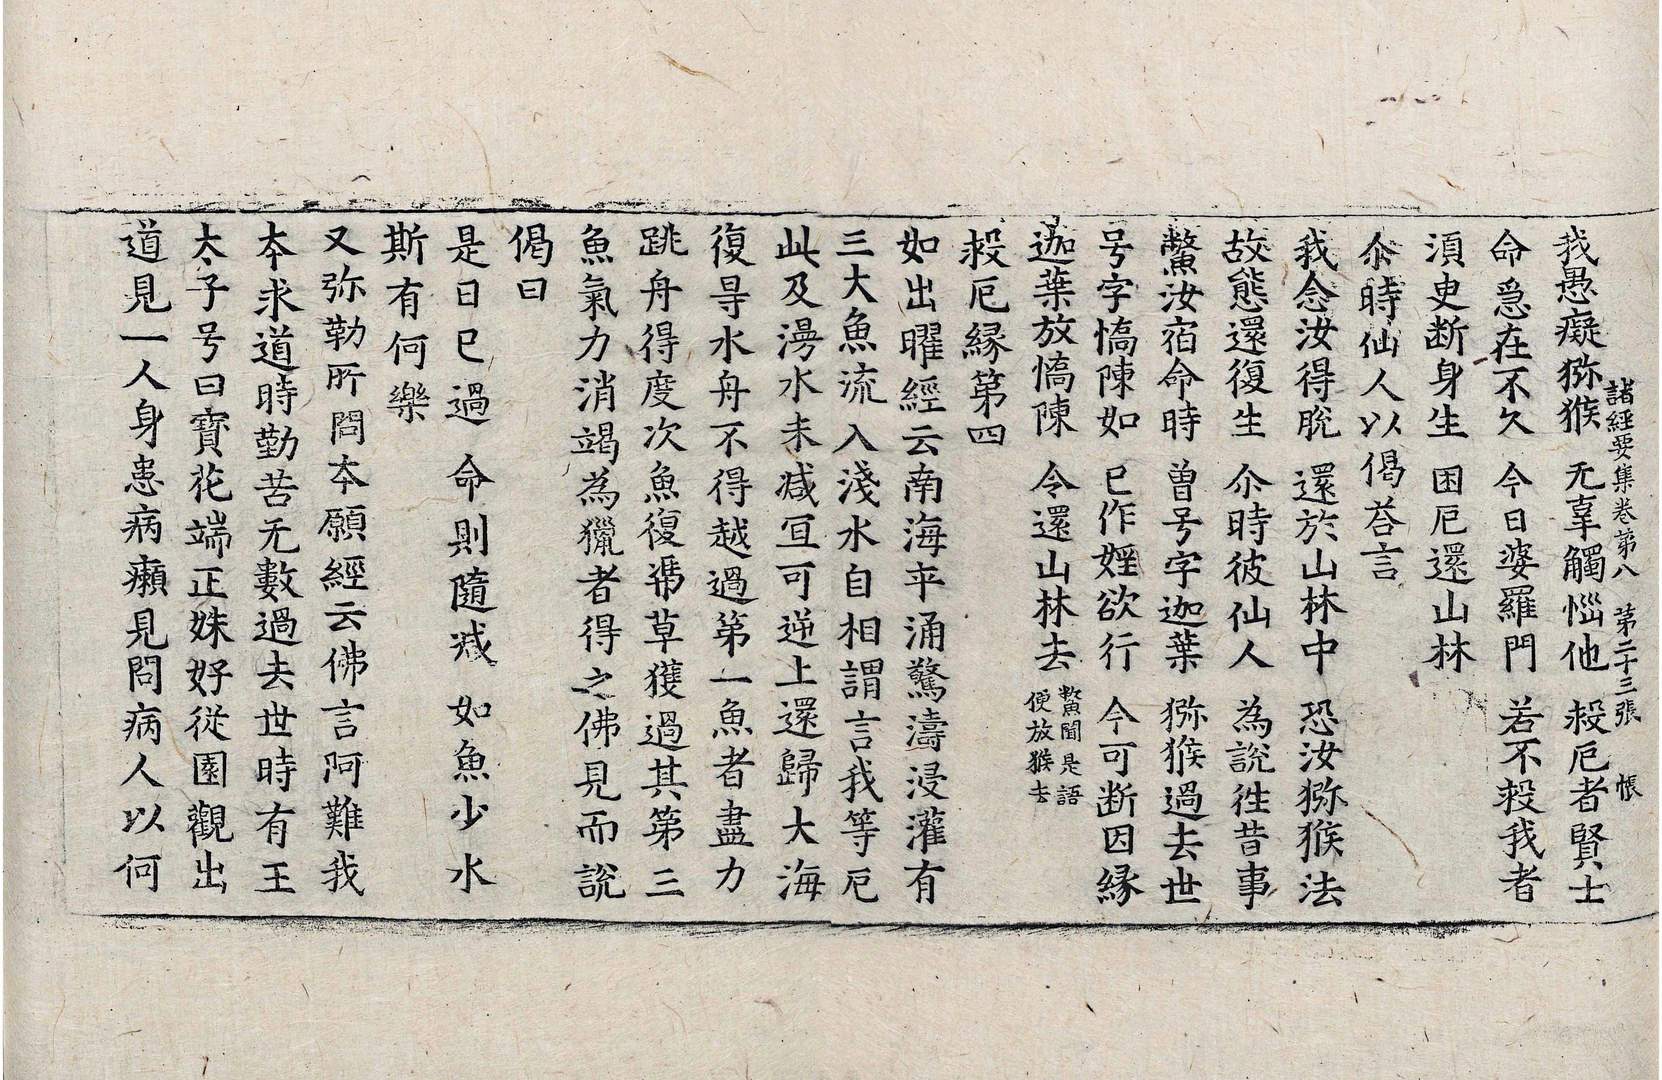 諸經要集卷第八 第二十三張 悵
我愚癡猕猴 无辜觸惱他 投厄者賢士
命急在不久 今日婆羅門 若不投我者
湏臾断身生 困厄還山林
尒時仙人以偈荅言
我念汝得脫 還於山林中 恐汝猕猴法
故態還復生 尒時彼仙人 為說徃昔事
鱉汝宿命時 曽号字迦葉 猕猴過去世
号字憍陳如 已作婬欲行 今可断因緣
迦葉放憍陳 令還山林去 鱉聞是語便放猴去
投厄緣第四
如出曜經云南海卒涌驚濤浸灌有
三大魚流入淺水自相謂言我等厄
此及漫水未減冝可逆上還歸大海
復㝵水舟不得越過第一魚者盡力
跳舟得度次魚復馮草獲過其第三
魚氣力消竭為獵者得之佛見而說
偈曰
是日已過 命則隨減 如魚少水
斯有何樂
又弥勒所問本願經云佛言阿難我
本求道時勤苦无數過去世時有王
太子号曰寶花端正姝好從園觀出
道見一人身患病癩見問病人以何